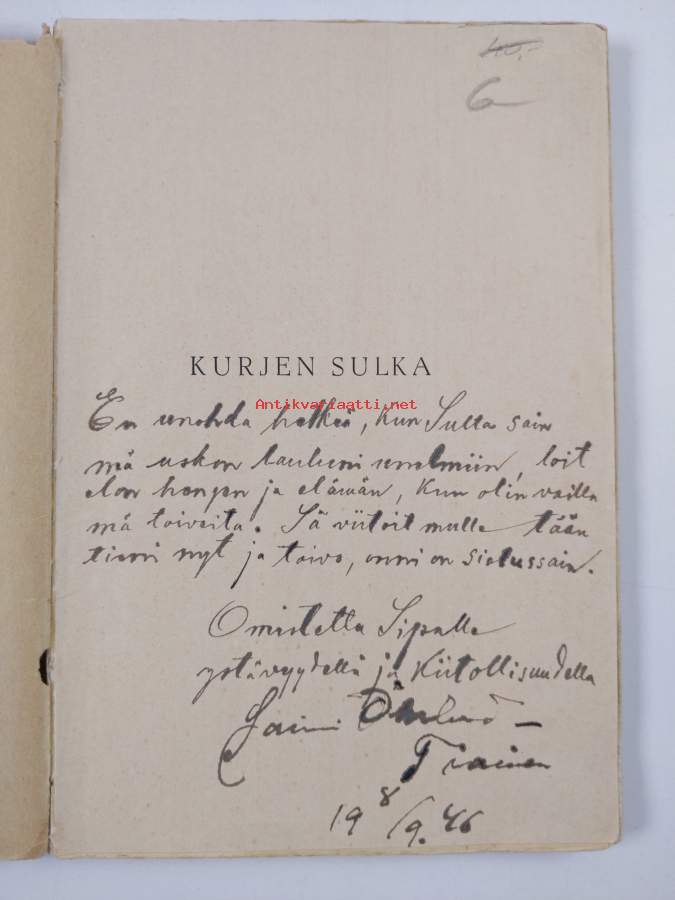 40,-
6
KURJEN SULKA
Antikvariaatti.net
En unohda hetkeä, kun Sulta sain
mä uskon lauluni unelmiin, loit
eloon hengen ja elämän, kun olin vailla
mä toiveita. Sä viitoit mulle tään
tieni nyt ja toivo, onni on sielussain.
Omistettu Sipalle
ystävyydellä ja kiitollisuudella
Tiainen
19 8/9. 46